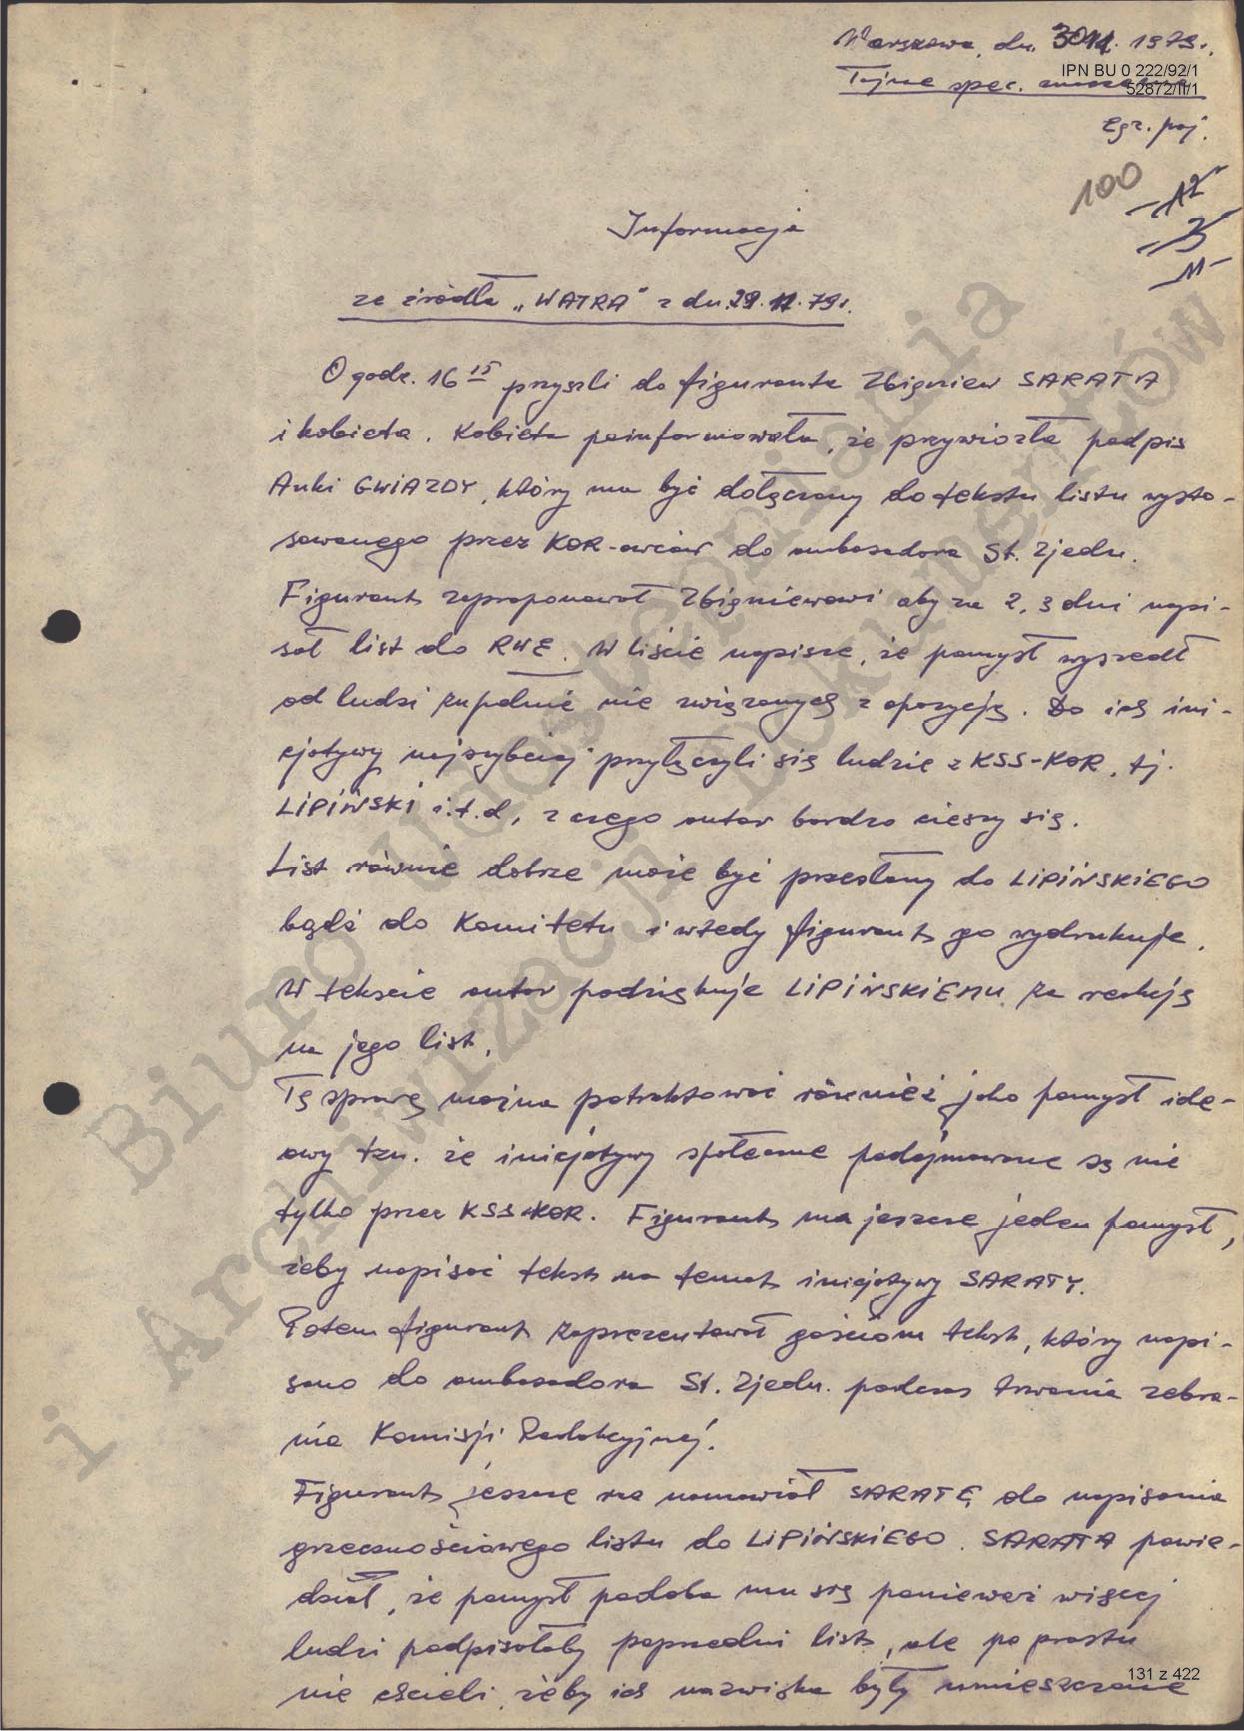 Warszawa, dn. 30.11. 1979r.
IPN BU 0 222/92/1
Tajne spec. znaczenia
52872/II/1
Egz. poj.
100
Informacja
ze źródła „WATRA" z dn. 29. 11. 79r.
O godz. 16 15 przyszli do figuranta Zbigniew SARATA
i kobieta. Kobieta poinformowała, że przywiozła podpis
Anki GWIAZDY, który ma być dołączony do tekstu listu wysto-
sowanego przez KOR-owców do ambasadora St. Zjedn.
Figurant zaproponował Zbigniewowi aby za 2, 3 dni napi-
sał list do RWE. W liście napisze, że pomysł wyszedł
od ludzi zupełnie nie związanych z opozycją. Do ich ini-
cjatywy najszybciej przyłączyli się ludzie z KSS-KOR, tj.
LIPIŃSKI i.t.d, z czego autor bardzo cieszy się.
List równie dobrze może być przesłany do LIPIŃSKIEGO
bądź do Komitetu i wtedy figurant go wydrukuje.
W tekście autor podziękuje LIPIŃSKIEMU za reakcję
na jego list.
Tę sprawę można potraktować również jako pomysł ide-
owy tzn. że inicjatywy społeczne podejmowane są nie
tylko przez KSS-KOR. Figurant ma jeszcze jeden pomysł,
żeby napisać tekst na temat inicjatywy SARATY.
Potem figurant zaprezentował gościom tekst, który napi-
sano do ambasadora St. Zjedn. podczas trwania zebra-
nia Komisji Redakcyjnej.
Figurant jeszcze raz namawiał SARATĘ do napisania
grzecznościowego listu do LIPIŃSKIEGO. SARATA powie-
dział, że pomysł podoba mu się ponieważ więcej
ludzi podpisałoby poprzedni list, ale po prostu
131 z 422
nie chcieli, żeby ich nazwiska były umieszczane
Biuro Udostępniania
i Archiwizacji Dokumentów